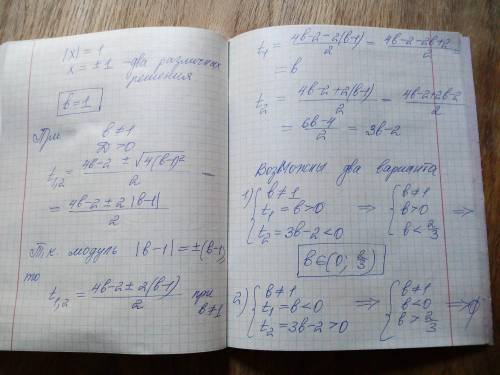 |x| = 1
x = ±1 - два различных
решения
b=1
При b ≠ 1
D > 0
t₁,₂ = (4b-2 ± √4(b-1)²)/2 =
= (4b-2 ± 2|b-1|)/2
Т.к. модуль |b-1| = ±(b-1),
то
t₁,₂ = (4b-2 ± 2(b-1))/2 при b≠1
t₁ = (4b-2-2(b-1))/2 = (4b-2-2b+2)/2 =
= b
t₂ = (4b-2+2(b-1))/2 = (4b-2+2b-2)/2
= (6b-4)/2 = 3b-2
Возможны два варианта
1) { b≠1 ⇒ { b≠1
t₁ = b > 0 ⇒ b>0 ⇒
t₂ = 3b-2 < 0 b < 2/3
b ∈ (0; 2/3)
2) { b≠1 ⇒ { b≠1
t₁ = b < 0 ⇒ b<0 ⇒ ∅
t₂ = 3b-2 > 0 b > 2/3